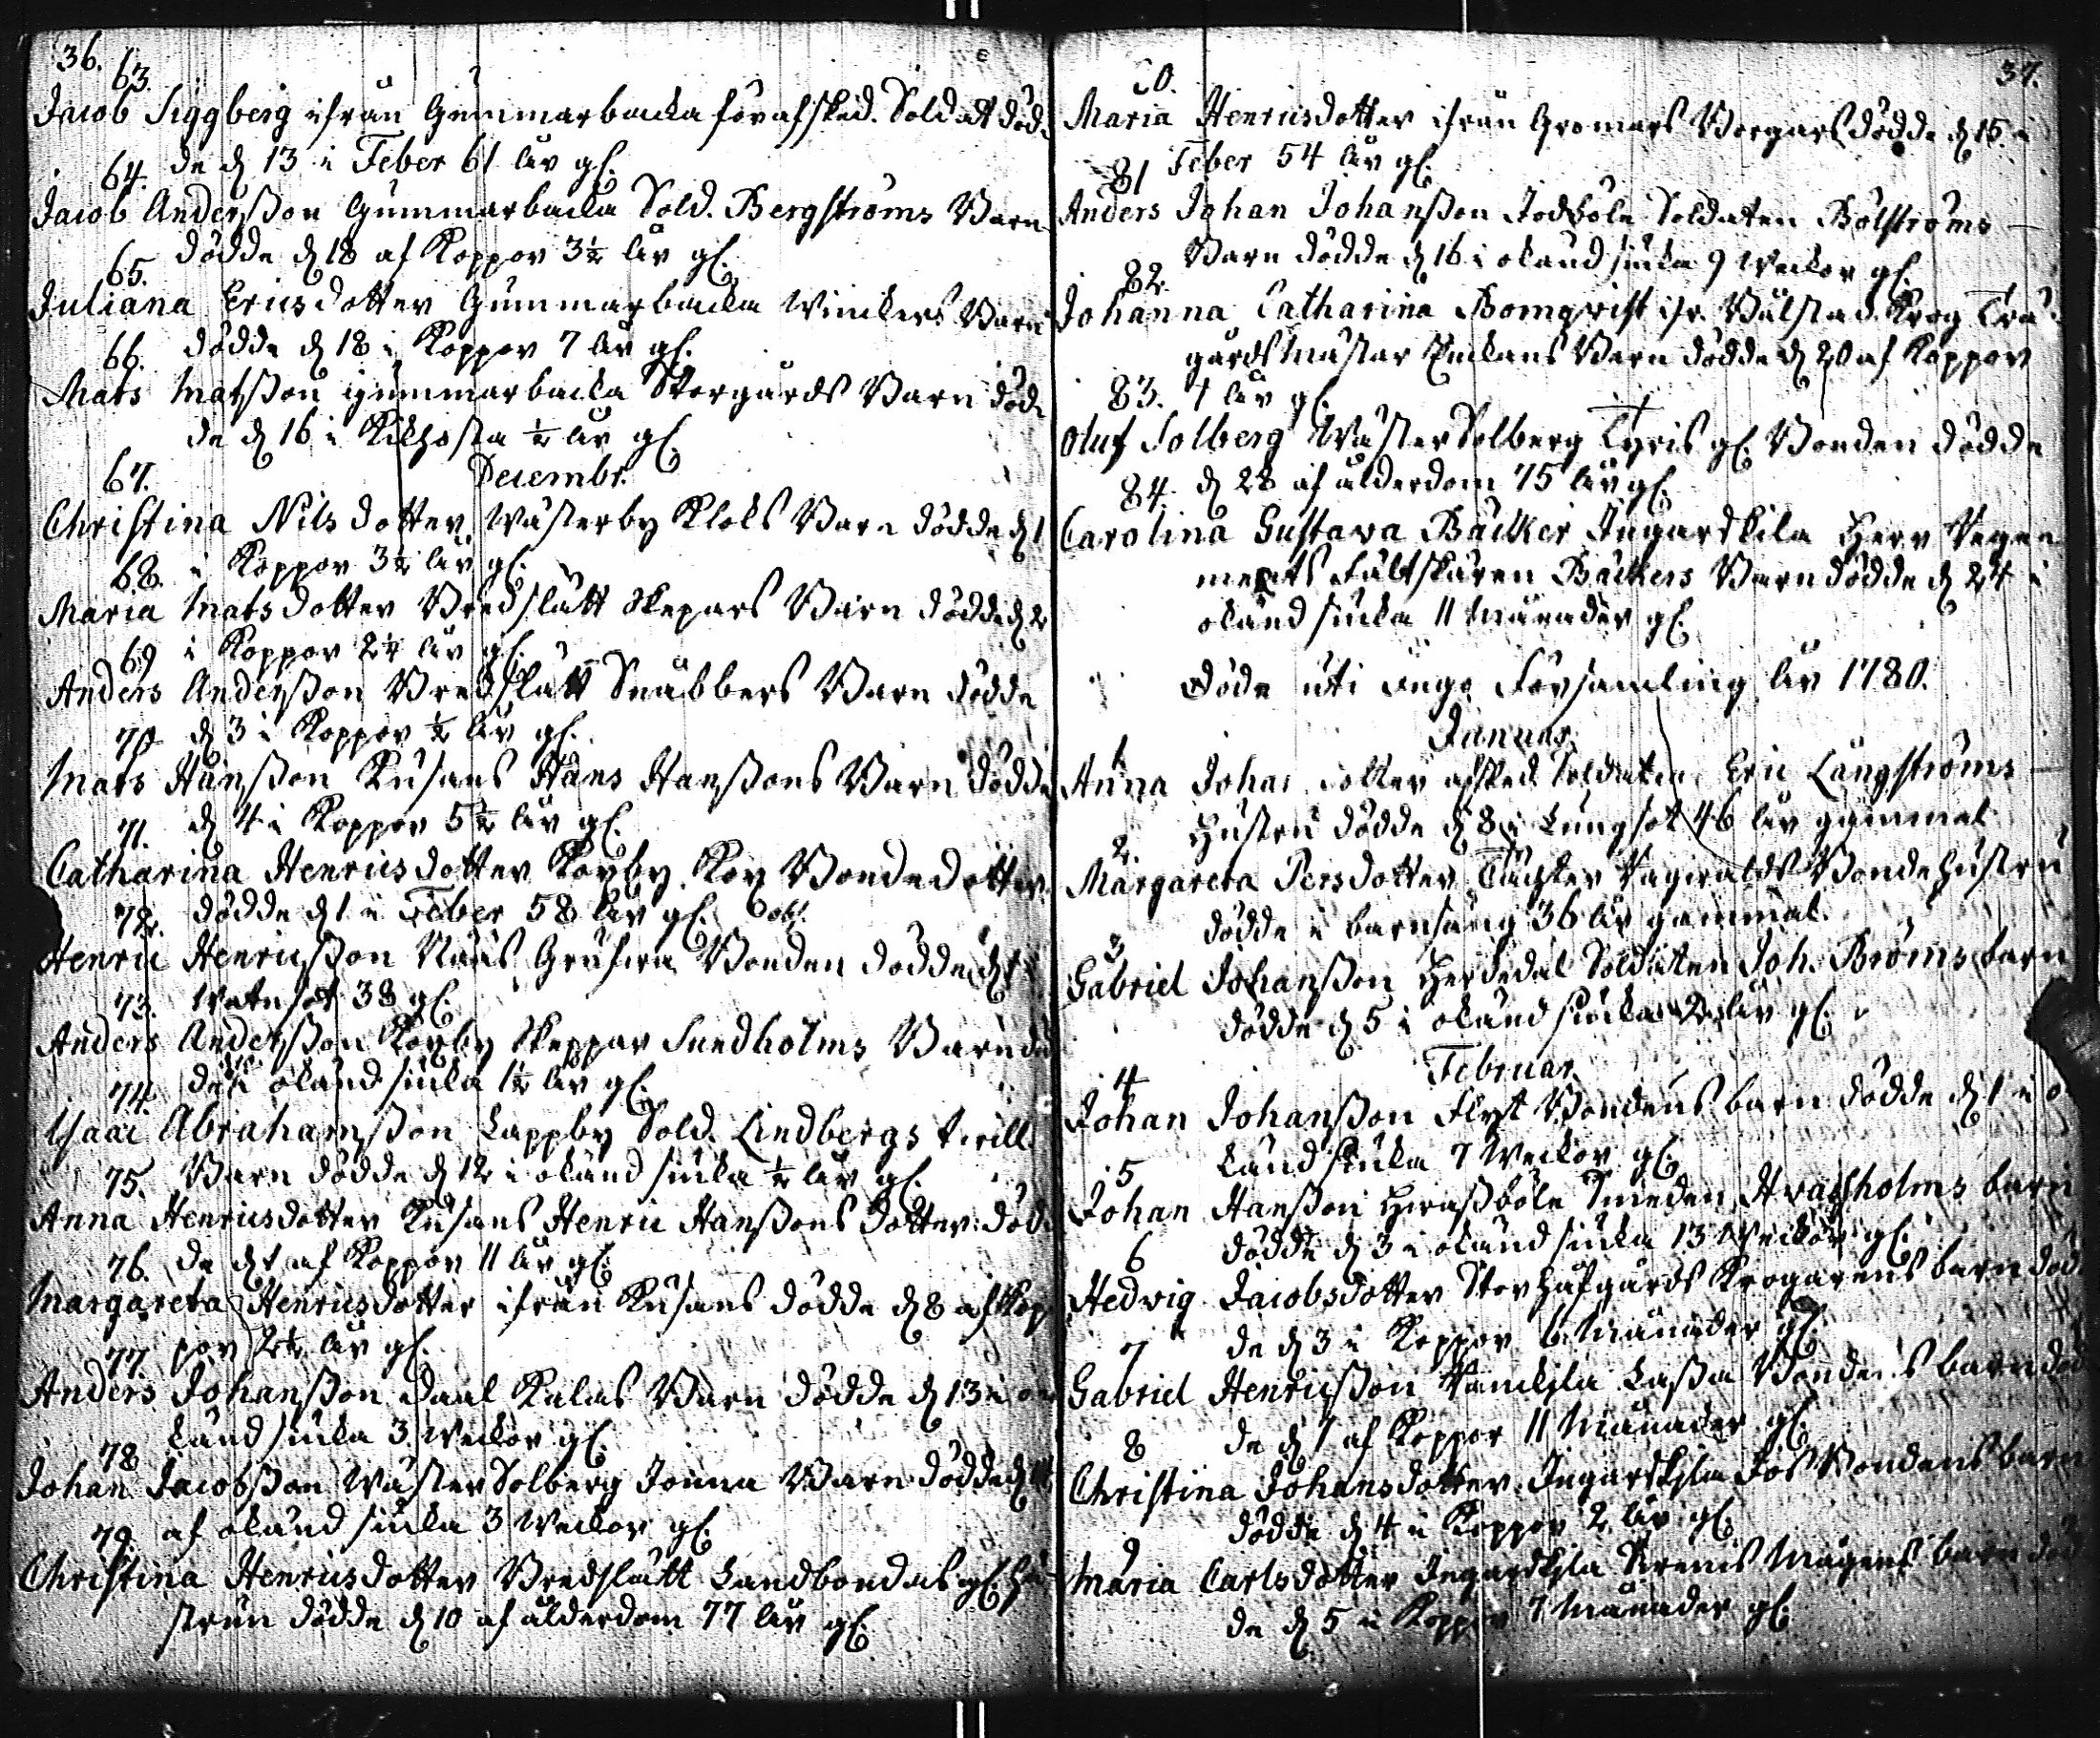 36.
63.
Jacob Siggberg ifrån Gummarbacka förafsked. Soldat död-
de d 13 i Feber 61 åår gl.
64.
Jacob Anderßon Gummarbacka Sold. Bergströms Barn
dödde d 18 af Koppor 3½ åår gl.
65.
Juliana Ericsdotter Gummarbacka Winckers Barn
dödde d 18 i Koppor 7 åår gl.
66.
Mats Matsßon Gummarbacka Storgårds Barn död-
de d 16 i Kikhosta ½ åår gl.
Decembr.
67.
Christina Nilsdotter Wästerby Kloks Barn dödde d 1
i Koppor 3½ åår gl.
68.
Maria Matsdotter Bredslätt Skepars Barn dödde d 2
i Koppor 2¼ åår gl.
69
Anders Anderßon Bredslätt Snäbbers Barn dödde
d 3 i Koppor ½ åår gl.
70
Mats Hansßon Kusans Hans Hansßons Barn dödde
d 4 i Koppor 5½ åår gl.
71.
Catharina Henricsdotter Korby Kor Bondedotter
dödde d 1 i Feber 58 åår gl.
72.
Henric Henricsßon Näås Bonden dödde
Watusot 38 gl.
73.
Anders Andersßon Korby Skeppar Sundholms Barn
i okänd siuka 1½ åår gl.
74.
Isaac Abrahamsßon Lappby Sold. Lindbergs
Barn dödde d 12 i okänd siuka ½ åår gl.
75.
Anna Henricsdotter Kusans Henric Hansßons dotter död-
de af Koppor 11 åår gl.
76.
Margareta Henricsdotter ifrån Kusans dödde d 8 af Kop-
por 2½ åår gl.
77
Anders Johanßon Daal Kalas Barn dödde d 13 i o-
känd siuka 3 Weckor gl.
78
Johan Jacobsßon Wäster Solberg Barn dödde
af okänd siuka 3 Weckor gl.
79.
Christina Henricsdotter Bredslätt Landbondas gl. hu-
strun dödde d 10 af ålderdom 77 åår gl.
37.
80.
Maria Henricsdotter ifrån Gromars dödde d 15 i
Feber 54 åår gl.
81
Anders Johan Johanßon Jodböle Soldaten Bölströms
Barn dödde d 16 i okänd siuka 9 Weckor gl.
82.
Johanna Catharina Bomqvist ifr. Krog Trä-
gårdsmästar Enckans Barn dödde d 20 af Koppor
4 åår gl.
83.
Oluf Solberg Wäster Solberg gl. Bonden dödde
d 28 af ålderdom 75 åår gl.
84.
Carolina Gustava Bäcker Ingarskila Herr Rege-
ments Fältskären Bäckers Barn dödde d 24 i
okänd siuka 11 Månader gl.
Döde uti Ingo Församling åår 1780.
Januar.
1
Anna Johansdotter afsked. Soldaten Eric Långströms
Hustru dödde d 8 i Lungsot 46 åår gammal.
2.
Margareta Persdotter Bondehustru
dödde i barnsäng 36 åår gammal.
3
Gabriel Johanßon Soldaten Joh. Bröms barn
dödde d 5 i okänd siucka 2 åår gl.
Februar.
4
Johan Johanßon Flyt Bondens barn dödde d 1 i o-
känd siuka 7 Weckor gl.
5
Johan Hanßon Smeden barn
dödde d 3 i okänd siuka 13 Weckor gl.
6
Hedvig Jacobsdotter Krogarens barn död-
de d 3 i Koppor 6 Månader gl.
7
Gabriel Henricsßon Laßa Bondens barn död-
de d 7 af Koppor 11 Månader gl.
8
Christina Johansdotter Ingarskila Bondens barn
dödde d 4 i Koppor 2 åår gl.
9
Maria Carlsdotter Ingarskila Mågens barn död-
de d 5 i Koppor 7 Månader gl.